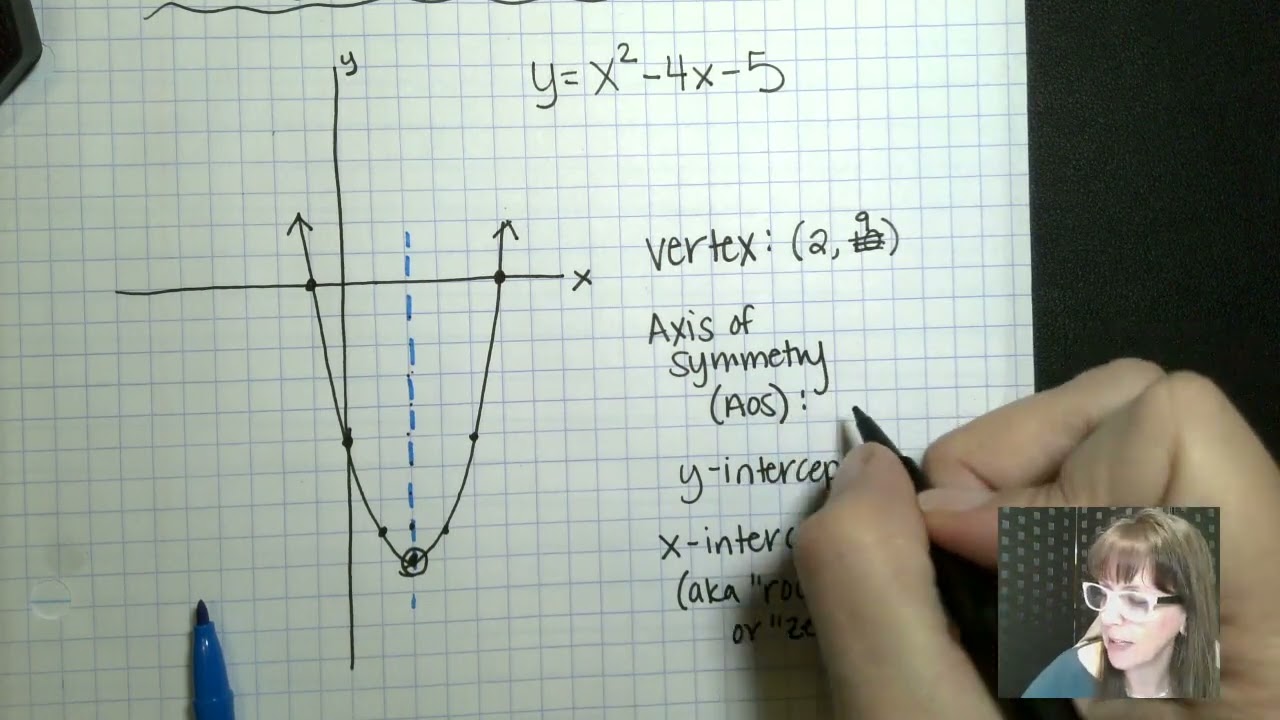 y
y = x² - 4x - 5
vertex: (2, 9)
Axis of
symmetry
(AOS):
x
y-intercep
x-interc
(aka "ro
or "ze